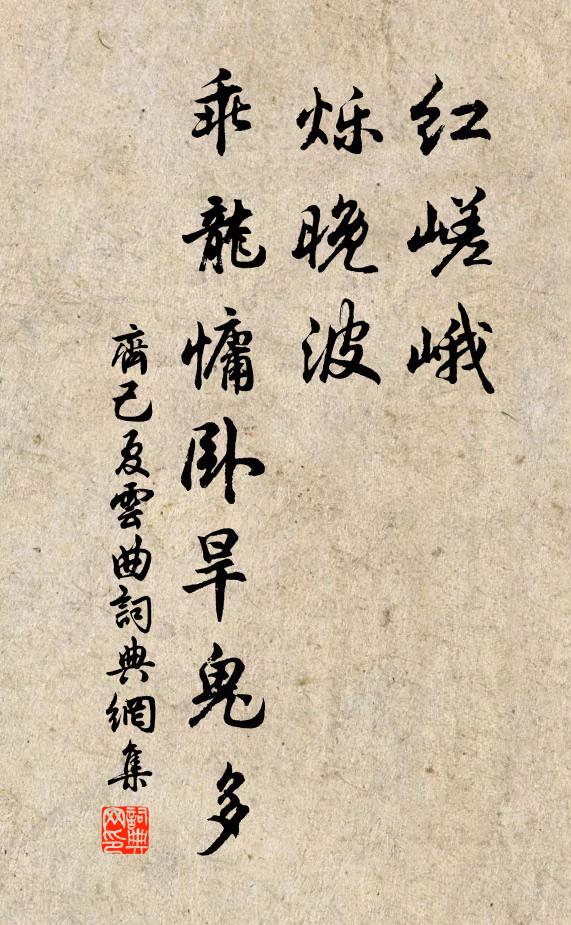 红嵯峨
烁晚波
乖龍慵卧旱鬼多
齊己夏雲曲詞典網集
詞典网印